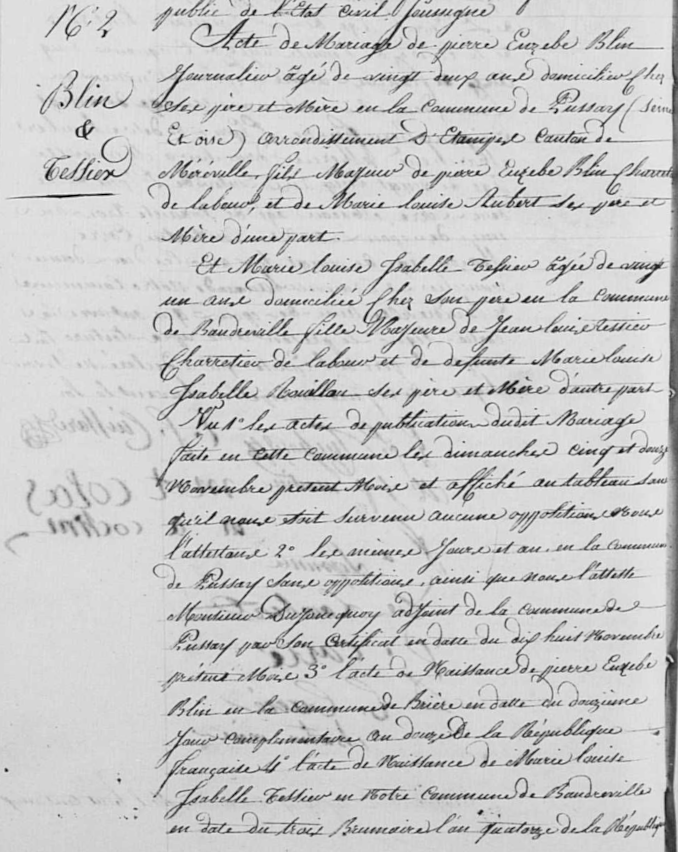 N.° 2
Blin
&
Tessier
public de l'Etat Civil Soussigné
Acte de Mariage de pierre Euzebe Blin
Journalier âgé de vingt deux ans domicilier Chez
Ses père et Mère en la Commune de Pussay (Seine
Et oise) arrondissement d'Etampes Canton de
Méréville, fils Majeur de pierre Euzebe Blin Charretier
de labour et de Marie louise Aubert ses père et
Mère d'une part.
Et Marie louise Isabelle Tessier âgée de vingt
un ans domiciliée Chez Son père en la Commune
de Baudreville fille Majeure de Jean louis tessier
Charretier de labour et de défunte Marie louise
Isabelle Rouillon ses père et Mère d'autre part
Vu 1° les actes de publication dudit Mariage
faite en cette Commune les dimanches cinq et douze
Novembre présent Mois et affiché au tableau sans
qu'il nous soit survenu aucune oppositions Nous
l'attestons 2° les mêmes Jours et an en la Commune
de Pussay sans oppositions, ainsi que nous l'atteste
Monsieur adjoint de la Commune de
Pussay par Son Certificat en datte du dix huit Novembre
présent Mois 3° l'acte de Naissance de pierre Euzebe
Blin en la Commune de Brière en datte du
Jour Complementaire an douze de la République
française 4° l'acte de Naissance de Marie louise
Isabelle Tessier en Notre Commune de Baudreville
en date du trois Brumaire l'an quatorze de la République